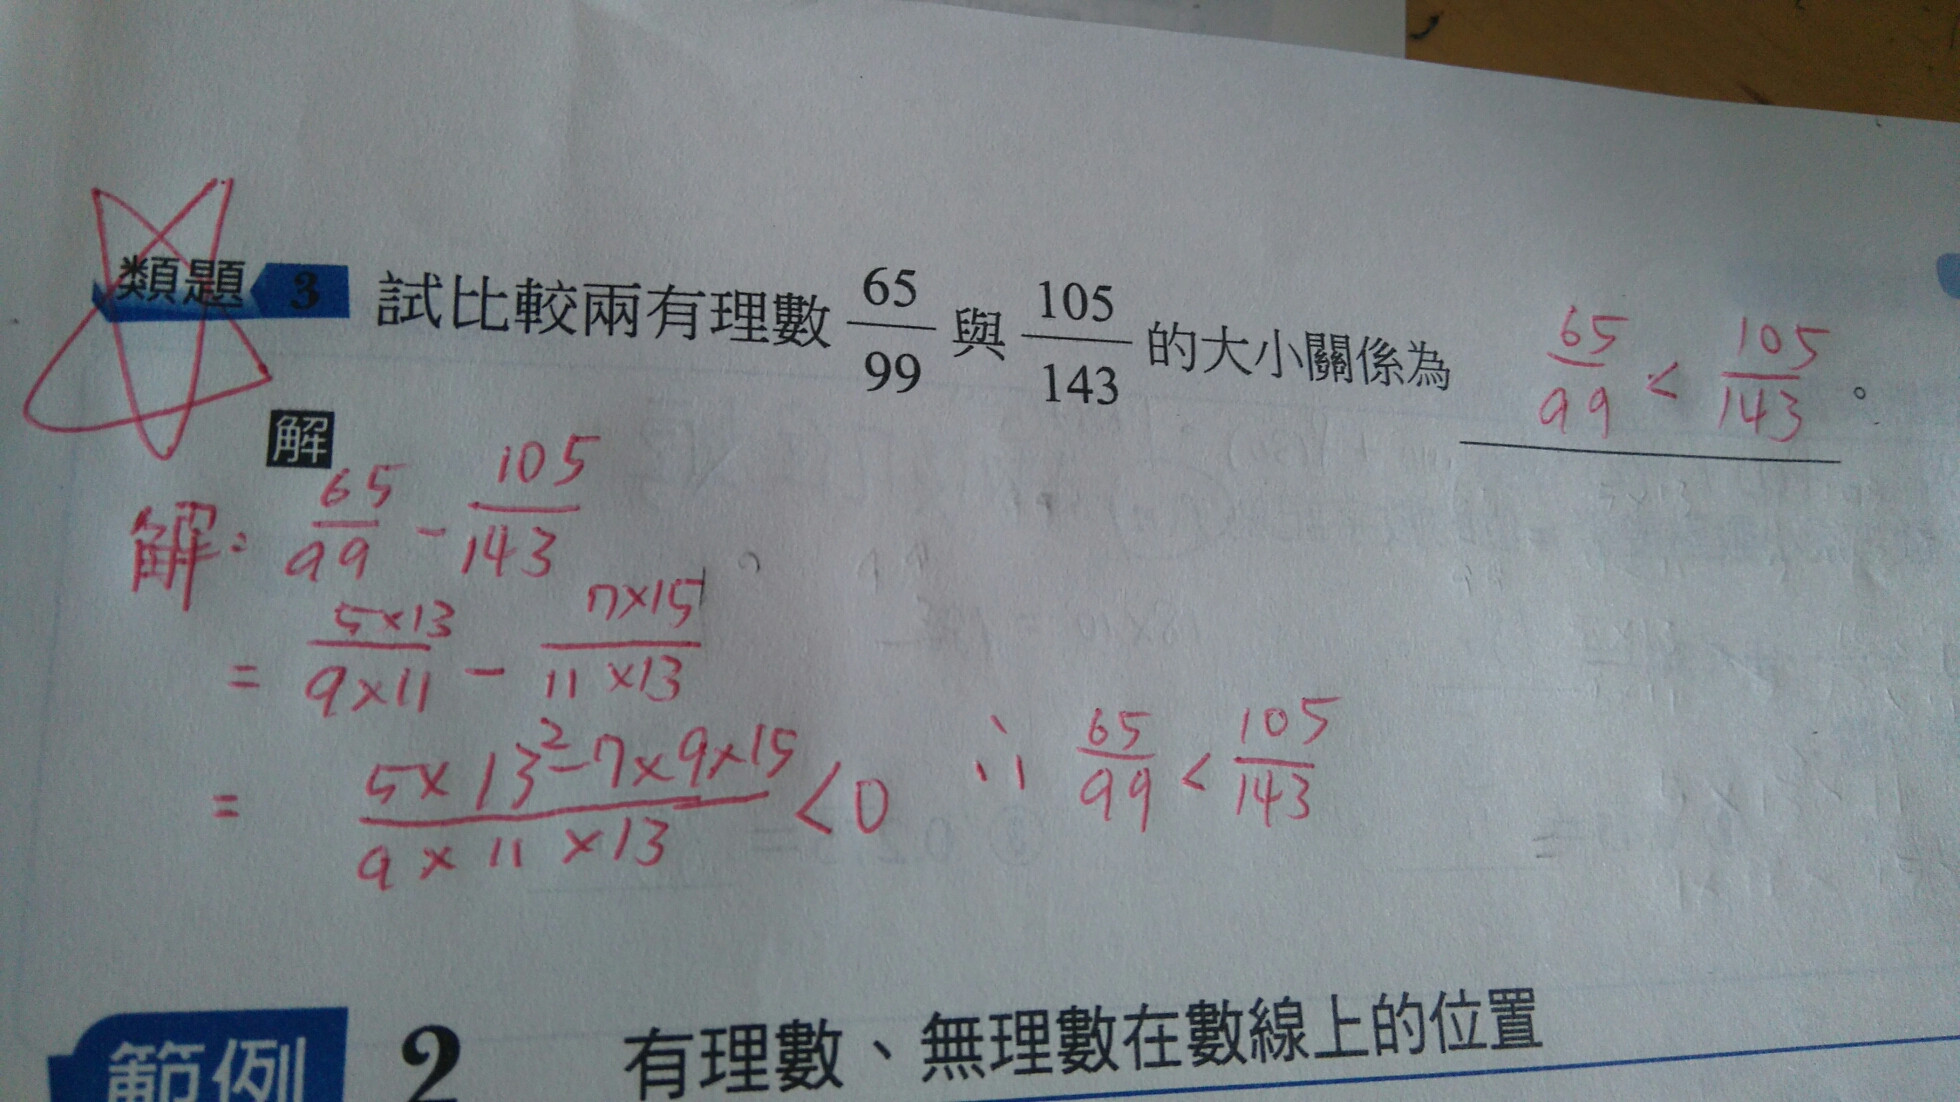 類題 3 試比較兩有理數 65/99 與 105/143 的大小關係為 65/99 < 105/143 。
解
解: 65/99 - 105/143
= 5×13/9×11 - 7×15/11×13
= 5×13²-7×9×15/9×11×13 <0 ∴ 65/99 < 105/143
範例 2 有理數、無理數在數線上的位置